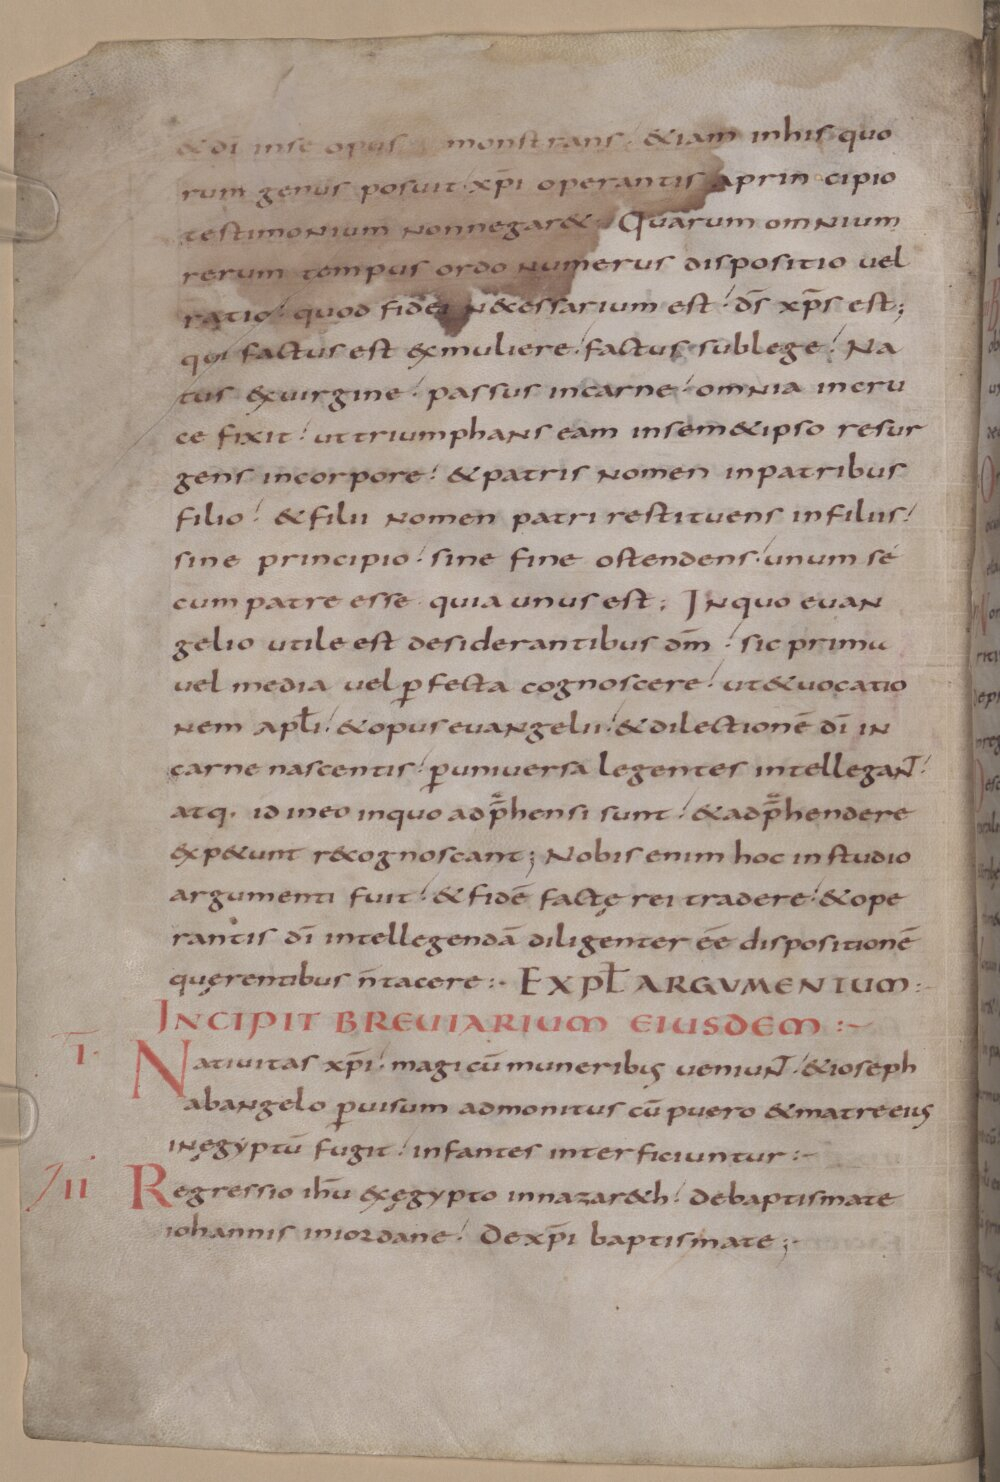 & dī in se opus monstrans. & iam in his quo
rum genus posuit xp̄i operantis a prin cipio
testimonium non negar&. Quarum omnium
rerum tempus ordo numerus dispositio vel
ratio. quod fidei n&cessarium est. ds̄ xp̄s est;
qui factus est ex muliere. factus sub lege. Na
tus ex virgine. passus in carne. omnia in cru
ce fixit. ut triumphans eam in sem&ipso resur
gens in corpore. & patris nomen in patribus
filio. & filii nomen patri restituens in filiis.
sine principio. sine fine ostendens. unum se
cum patre esse quia unus est; In quo evan
gelio utile est desiderantibus dm̄. sic prima
vel media vel ꝑfecta cognoscere. ut & vocatio
nem apłi. & opus evangelii. & dilectionē dī in
carne nascentis. ꝑ universa legentes intellegant.
atq. id in eo in quo adp̄hensi sunt. & adp̄hendere
exp&unt r&cognoscant; Nobis enim hoc in studio
argumenti fuit. & fidē factę rei tradere. & ope
rantis dī intellegendā diligenter eē dispositionē
quęrentibus n̄ tacere:· EXPŁ ARGUMENTUM:
INCIPIT BREUIARIUM EIUSDEM :~
I. Nativitas xp̄i. magi cū muneribus veniunt. & ioseph
ab angelo ꝑ visum admonitus cū puero & matre eius
in ęgyptū fugit. infantes interficiuntur:~
II Regressio ihū ex ęgypto in nazar&h. De baptismate
iohannis in iordane. De xp̄i baptismate;·